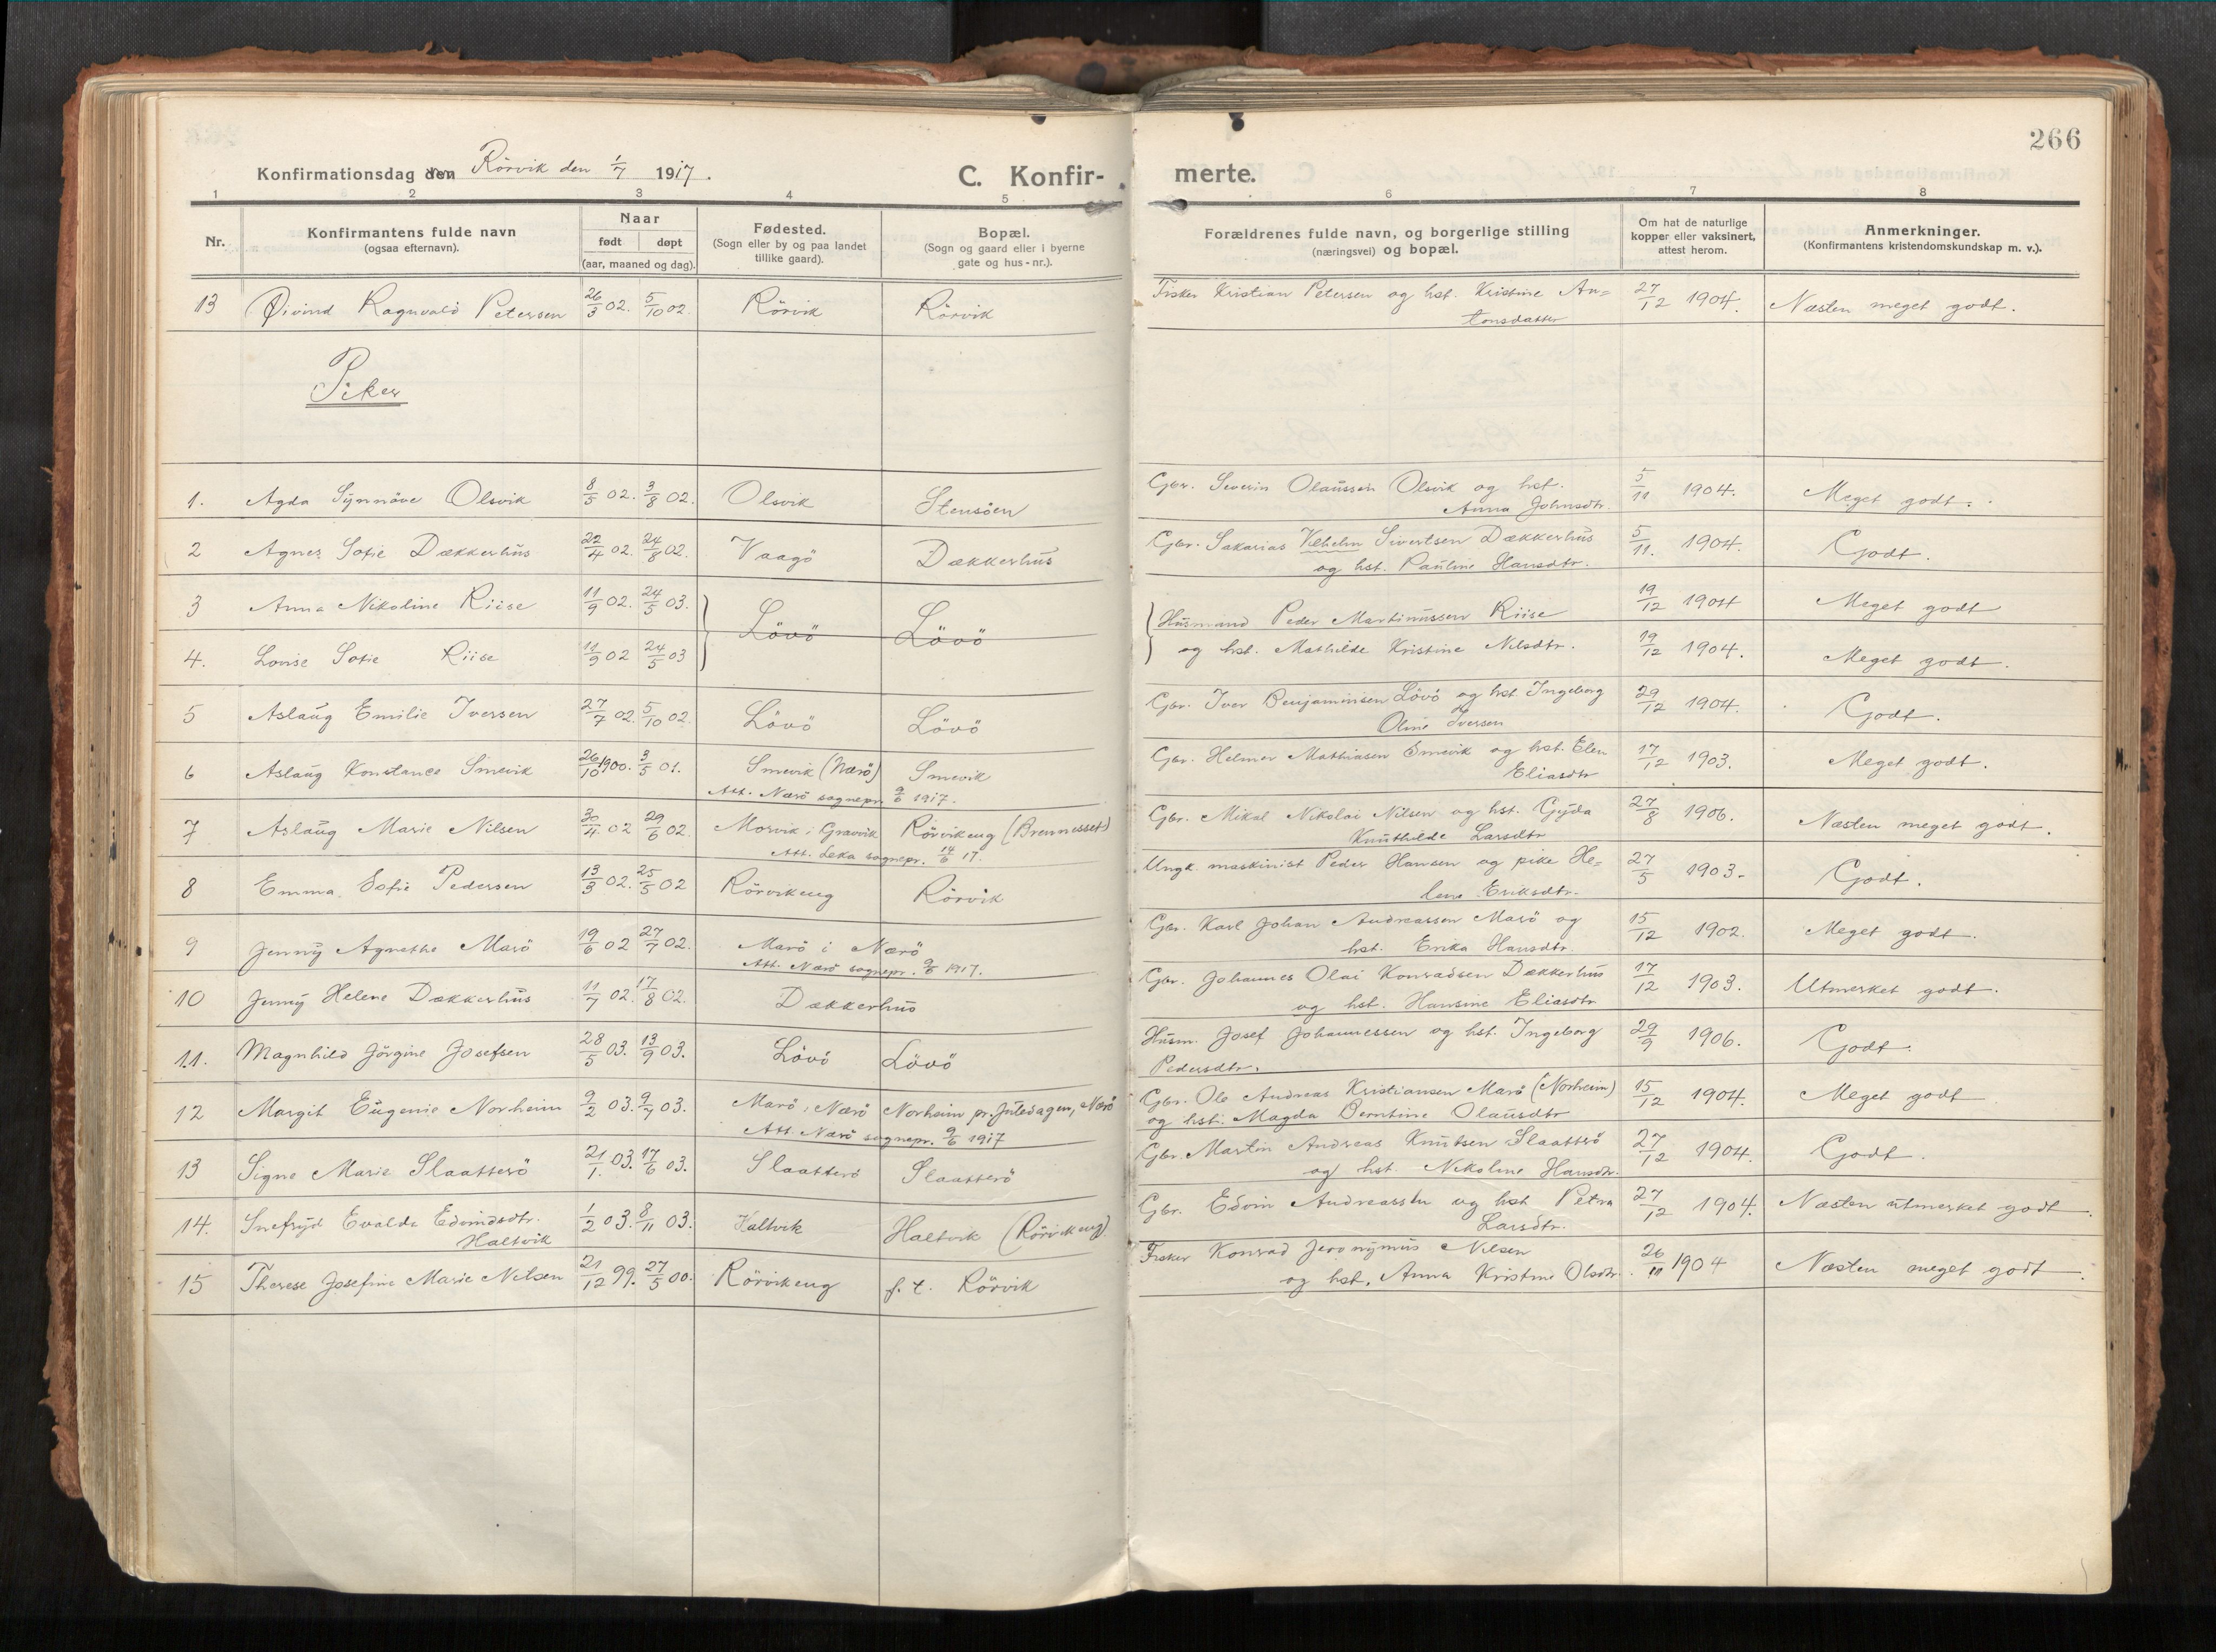 266
Konfirmationsdag den Rörvik den 1/7 1917.
C. Konfir-
merte.
1 2 3 4 5 6 7 8
Nr. Konfirmantens fulde navn (ogsaa efternavn). Naar født døpt (aar, maaned og dag). Fødested. (Sogn eller by og paa landet tillike gaard). Bopæl. (Sogn og gaard eller i byerne gate og hus-nr.). Forældrenes fulde navn, og borgerlige stilling (næringsvei) og bopæl. Om hat de naturlige kopper eller vaksinert, attest herom. Anmerkninger. (Konfirmantens kristendomskundskap m. v.).
13 Øivind Ragnvald Petersen 26/3 02. 5/10 02 Rörvik Rörvik Fisker Kristian Petersen og hst. Kristine An= 27/12 1904. Næsten meget godt.
tonsdatter
Piker
1. Agda Synnöve Olsvik 8/5 02. 3/8 02. Olsvik Stensöen Gbr. Severin Olaussen Olsvik og hst. 5/11 1904. Meget godt.
Anna Johnsdtr.
2 Agnes Sofie Dækkerhus 22/4 02. 24/8 02. Vaagö Dækkerhus Gbr. Sakarias Vilhelm Sivertsen Dækkerhus 5/11. 1904. Godt.
og hst. Pauline Hansdtr.
3 Anna Nikoline Riise 11/9 02. 24/5 03. Lövö Lövö Husmand Peder Martinussen Riise 19/12 1904 Meget godt
4. Lovise Sofie Riise 11/9 02 24/5 03 og hst. Mathilde Kristine Nilsdtr. 19/12 1904. Meget godt.
5 Aslaug Emilie Iversen 27/7 02. 5/10 02. Lövö Lövö Gbr. Iver Benjaminsen Lövö og hst Ingeborg 29/12 1904. Godt.
Oline Iversen
6 Aslaug Konstance Smevik 26/10 1900. 3/5 01. Smevik (Nærö) Smevik Gbr. Helmer Mathiasen Smevik og hst. Elen 17/12 1903. Meget godt.
Att. Nærö sognepr. 9/6 1917. Eliasdtr
7 Aslaug Marie Nilsen 30/4 02 29/6 02. Morvik i Gravvik Rörvikeng (Brennesset) Gbr. Mikal Nikolai Nilsen og hst. Gyda 27/8 1906. Næsten meget godt.
Att. Leka sognepr. 14/6 17. Knuthilde Larsdtr
8 Emma Sofie Pedersen 13/3 02. 25/5 02 Rörvikeng Rörvik Ungk. maskinist Peder Hansen og pike He= 27/5 1903. Godt.
lene Eriksdtr.
9 Jenny Agnethe Marö 19/6 02 27/7 02. Marö i Nærö Gbr. Karl Johan Andreassen Marö og 15/12 1902. Meget godt.
Att. Nærö sognepr. 9/6 1917. hst. Erika Hansdtr.
10 Jenny Helene Dækkerhus 11/7 02. 17/8 02. Dækkerhus Gbr. Johannes Olai Konradsen Dækkerhus 17/12 1903. Utmerket godt.
og hst. Hansine Eliasdtr
11. Magnhild Jörgine Josefsen 28/5 03. 13/9 03. Lövö Lövö Husm. Josef Johannessen og hst. Ingeborg 29/9 1906. Godt.
Pedersdtr.
12 Margit Eugenie Norheim 9/2 03. 9/7 03. Marö, Nærö Norheim pr. Juledagen, Nærö Gbr. Ole Andreas Kristiansen Marö (Norheim) 15/12 1904. Meget godt
Att. Nærö sognepr. 9/6 1917 og hst. Magda Berntine Olausdtr
13 Signe Marie Slaatterö 21/1. 03. 17/6 03. Slaatterö Slaatterö Gbr. Martin Andreas Knutsen Slaatterö 27/12 1904. Godt.
og hst. Nikoline Hansdtr.
14. Snefryd Evalda Edvindsdtr. 1/2 03. 8/11 03. Haltvik Haltvik (Rörvikeng). Gbr. Edvin Andreassen og hst Petra 27/12 1904. Næsten utmerket godt.
Haltvik Larsdtr.
15 Therese Josefine Marie Nilsen 21/12 99. 27/5 00. Rörvikeng f. t. Rörvik Fisker Konrad Jeronymus Nilsen 26/11 1904 Næsten meget godt.
og hst. Anna Kristine Olsdtr.